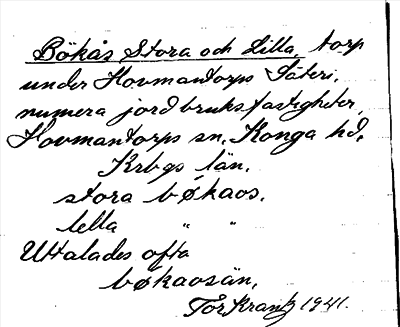 Bökås Stora och Lilla, torp
under Hovmantorps Säteri,
numera jordbruksfastigheter,
Hovmantorps sn. Konga hd,
Krbgs län.
stora bøkaos.
lella " "
Uttalades ofta
bøkaosän,
Tor Krantz 1941.